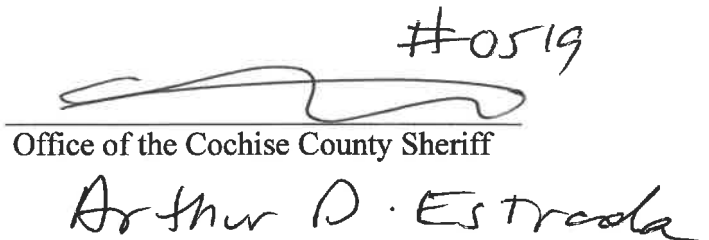 #0519
Office of the Cochise County Sheriff
Arthur D. Estrada